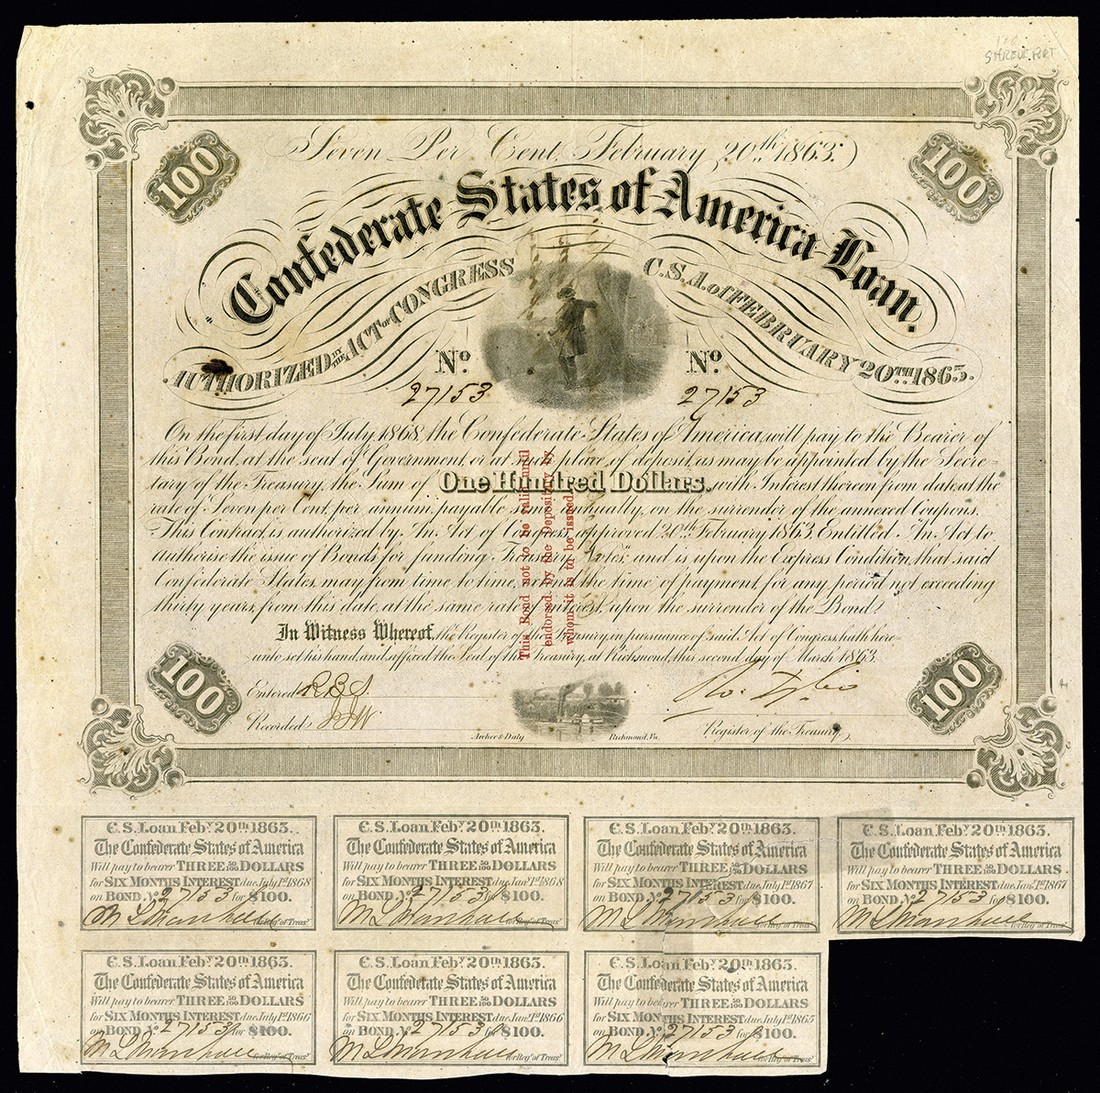 SHREVEPORT
Seven Per Cent. February 20th 1863.
100
100
Confederate States of America Loan.
AUTHORIZED BY THE ACT OF CONGRESS
C.S.A. of FEBRUARY 20TH 1863.
No.
No.
27153
27153
On the first day of July, 1868, the Confederate States of America, will pay to the Bearer of
this Bond, at the seat of Government, or at such place of deposit, as may be appointed by the Secre-
tary of the Treasury, the Sum of One Hundred Dollars. with Interest thereon from date, at the
rate of Seven per Cent, per annum, payable semi annually, on the surrender of the annexed Coupons.
This Contract is authorized by An Act of Congress, approved 20th February 1863, Entitled "An Act to
authorise the issue of Bonds for funding Treasury Notes," and is upon the Express Condition, that said
Confederate States, may from time to time, extend the time of payment for any period not exceeding
thirty years, from this date, at the same rate of interest, upon the surrender of the Bond.
This Bond not to be valid until
endorsed by the Depositary by
whom it is to be issued.
In Witness Whereof, the Register of the Treasury, in pursuance of said Act of Congress, hath here-
unto set his hand, and affixed the Seal of the Treasury, at Richmond, this second day of March 1863.
100
100
Entered
Recorded
Ro. Tyler
Archer & Daly
Richmond, Va.
Register of the Treasury.
C.S. Loan Feby. 20th 1863.
The Confederate States of America
Will pay to bearer THREE 50/100 DOLLARS
for SIX MONTHS INTEREST due July 1st 1868
on BOND No. 27153 for $100.
for Reg. of Treas.
C.S. Loan Feby. 20th 1863.
The Confederate States of America
Will pay to bearer THREE 50/100 DOLLARS
for SIX MONTHS INTEREST due Jany. 1st 1868
on BOND No. 27153 for $100.
for Reg. of Treas.
C.S. Loan Feby. 20th 1863.
The Confederate States of America
Will pay to bearer THREE 50/100 DOLLARS
for SIX MONTHS INTEREST due July 1st 1867
on BOND No. 27153 for $100.
for Reg. of Treas.
C.S. Loan Feby. 20th 1863.
The Confederate States of America
Will pay to bearer THREE 50/100 DOLLARS
for SIX MONTHS INTEREST due Jany. 1st 1867
on BOND No. 27153 for $100.
for Reg. of Treas.
C.S. Loan Feby. 20th 1863.
The Confederate States of America
Will pay to bearer THREE 50/100 DOLLARS
for SIX MONTHS INTEREST due July 1st 1866
on BOND No. 27153 for $100.
for Reg. of Treas.
C.S. Loan Feby. 20th 1863.
The Confederate States of America
Will pay to bearer THREE 50/100 DOLLARS
for SIX MONTHS INTEREST due Jany. 1st 1866
on BOND No. 27153 for $100.
for Reg. of Treas.
C.S. Loan Feby. 20th 1863.
The Confederate States of America
Will pay to bearer THREE 50/100 DOLLARS
for SIX MONTHS INTEREST due July 1st 1865
on BOND No. 27153 for $100.
for Reg. of Treas.